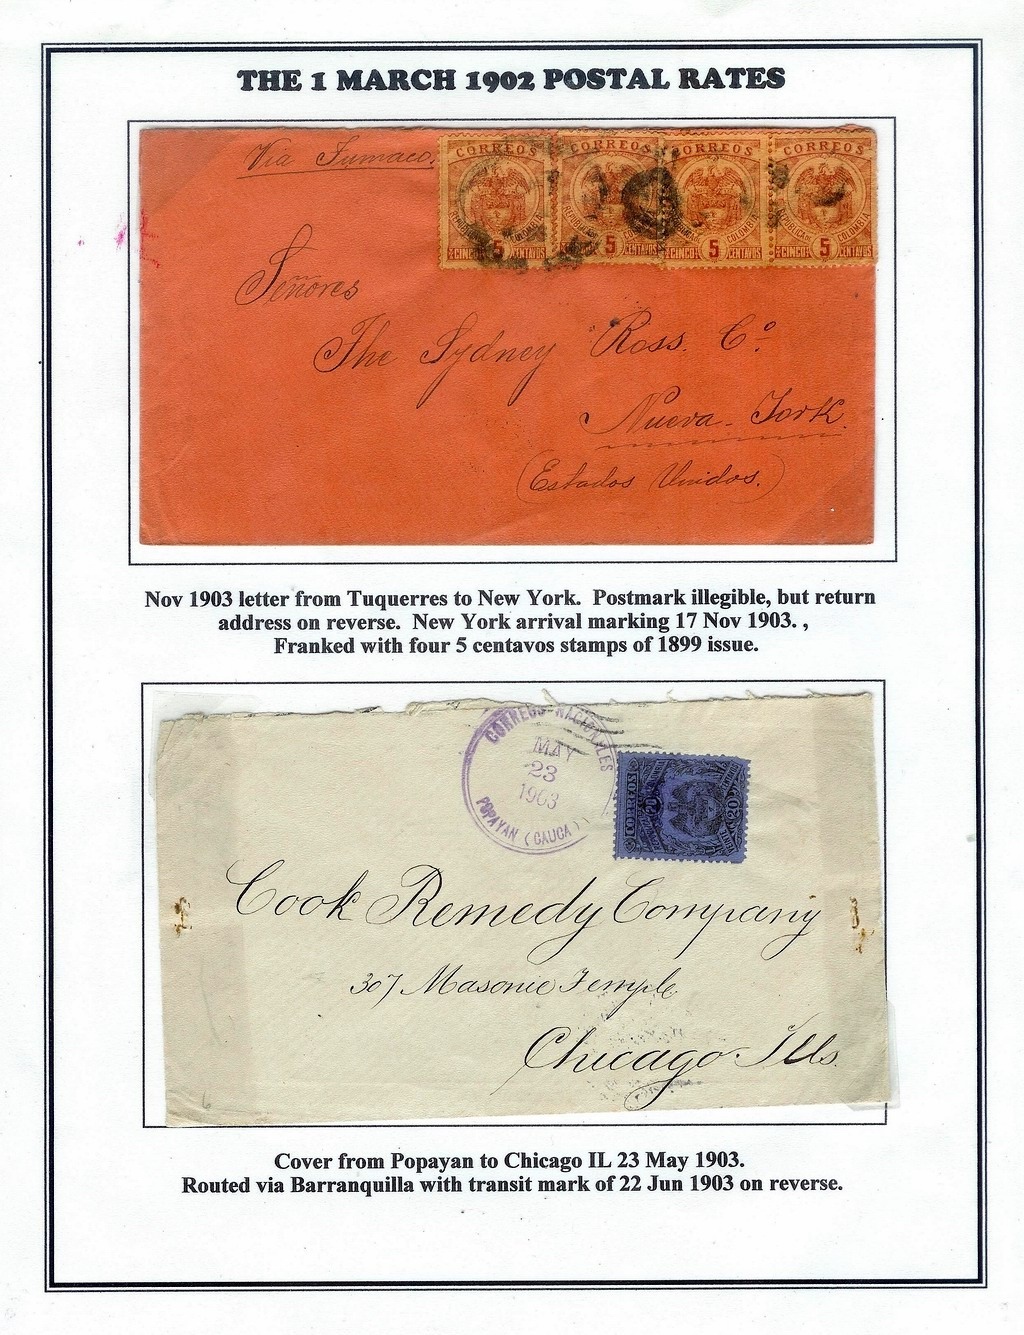 THE 1 MARCH 1902 POSTAL RATES
Via Tumaco.
CORREOS CORREOS CORREOS CORREOS
REPUBLICA DE COLOMBIA
CINCO 5 CENTAVOS 5 CENTAVOS CINCO 5 CENTAVOS CINCO 5 CENTAVOS
Señores
The Sydney Ross. Cº
Nueva-York.
(Estados Unidos.)
Nov 1903 letter from Tuquerres to New York. Postmark illegible, but return
address on reverse. New York arrival marking 17 Nov 1903. ,
Franked with four 5 centavos stamps of 1899 issue.
CORREOS NACIONALES
MAY
23
1903
POPAYAN (CAUCA)
CORREOS
20
VEINTE
20
Cook Remedy Company
307 Masonic Temple
Chicago Ills.
Cover from Popayan to Chicago IL 23 May 1903.
Routed via Barranquilla with transit mark of 22 Jun 1903 on reverse.